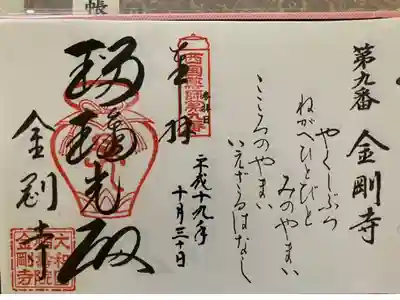 帳
第九番 金剛寺
やくしぶつ
ねがへひとびと
みのやまい
こころのやまい
いえざるはなし
参拝日
平成十九年
十月三十日
西国薬師第九番
奉拝
瑠璃光殿
金剛寺